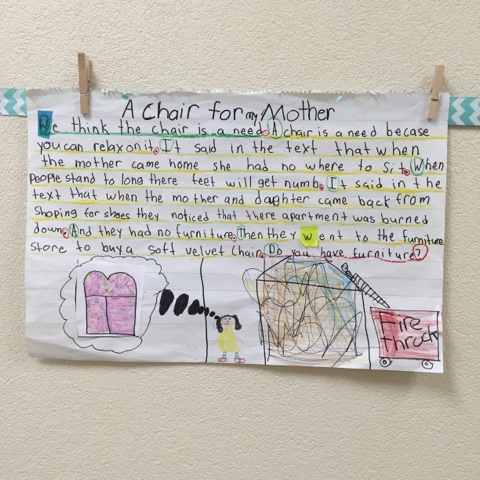 A Chair for my Mother
We think the chair is a need. A chair is a need becase
you can relax on it. It said in the text that when
the mother came home she had no where to sit. When
People stand to long there feet will get numb. It said in the
text that when the mother and daughter came back from
shoping for shoes they noticed that there apartment was burned
down. And they had no furniture. Then they went to the furniture
store to buy a soft velvet chair. Do you have furniture?
Fire
thruck